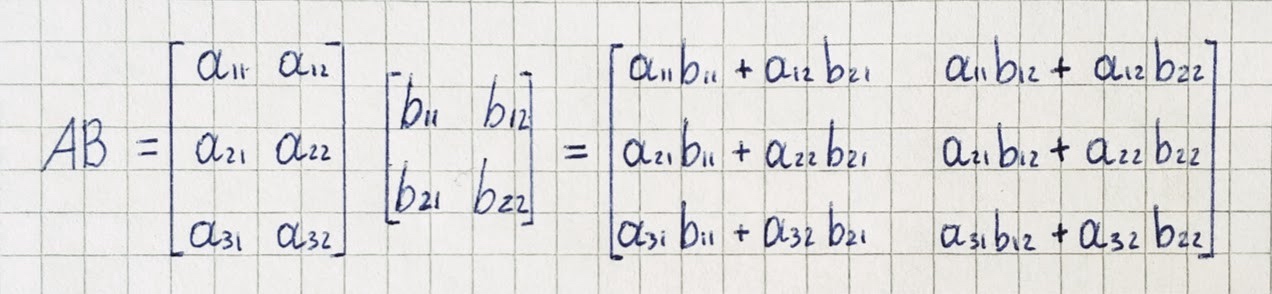 AB = [a₁₁ a₁₂; a₂₁ a₂₂; a₃₁ a₃₂] [b₁₁ b₁₂; b₂₁ b₂₂] = [a₁₁b₁₁ + a₁₂b₂₁ a₁₁b₁₂ + a₁₂b₂₂; a₂₁b₁₁ + a₂₂b₂₁ a₂₁b₁₂ + a₂₂b₂₂; a₃₁b₁₁ + a₃₂b₂₁ a₃₁b₁₂ + a₃₂b₂₂]